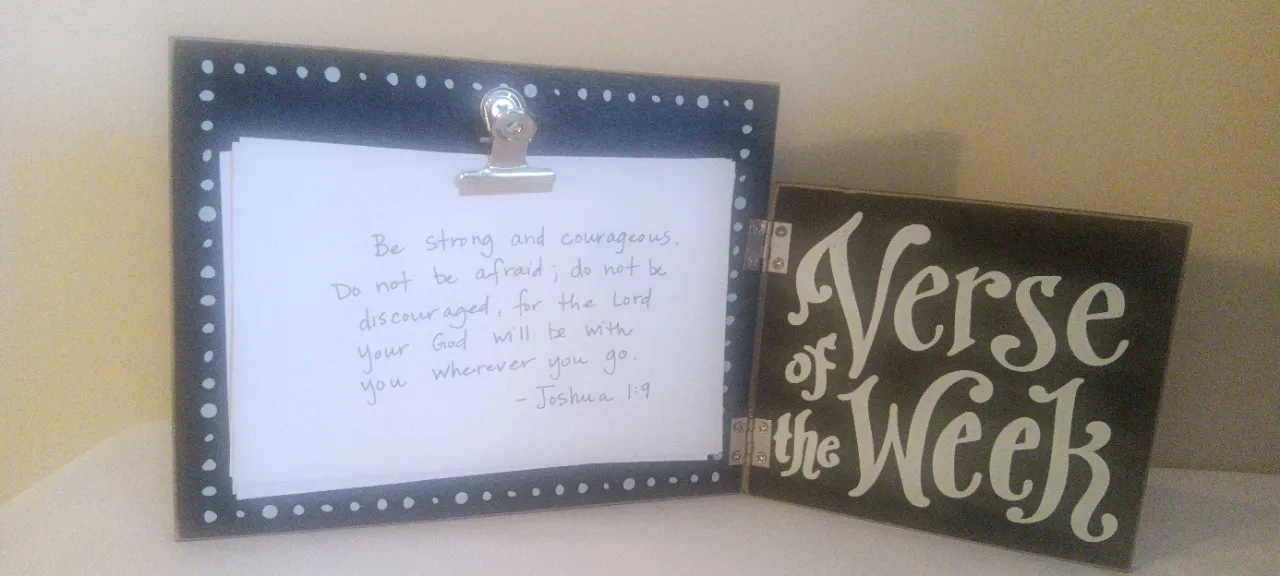 Be strong and courageous.
Do not be afraid; do not be
discouraged, for the Lord
your God will be with
you wherever you go.
- Joshua 1:9
Verse
of
the Week